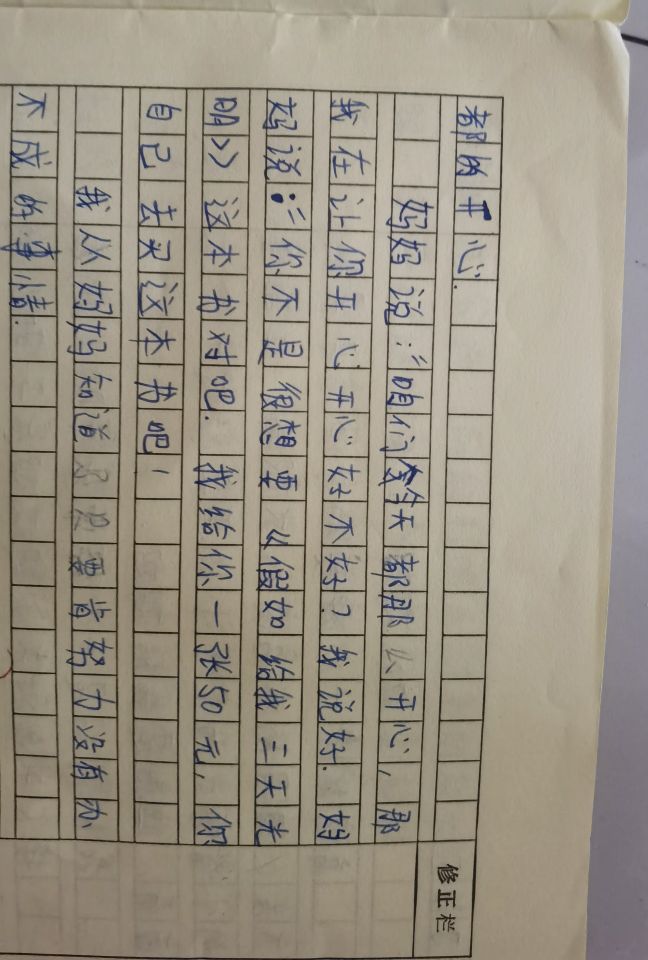 都的开心.
妈妈说:“咱们今天都那么开心,那
我在让你开心开心好不好?我说好.妈
妈说:“你不是很想要《假如给我三天光
明》这本书对吧.我给你一张50元,你
自己去买这本书吧!
我从妈妈知道只要肯努力没有办
不成的事情.
修正栏